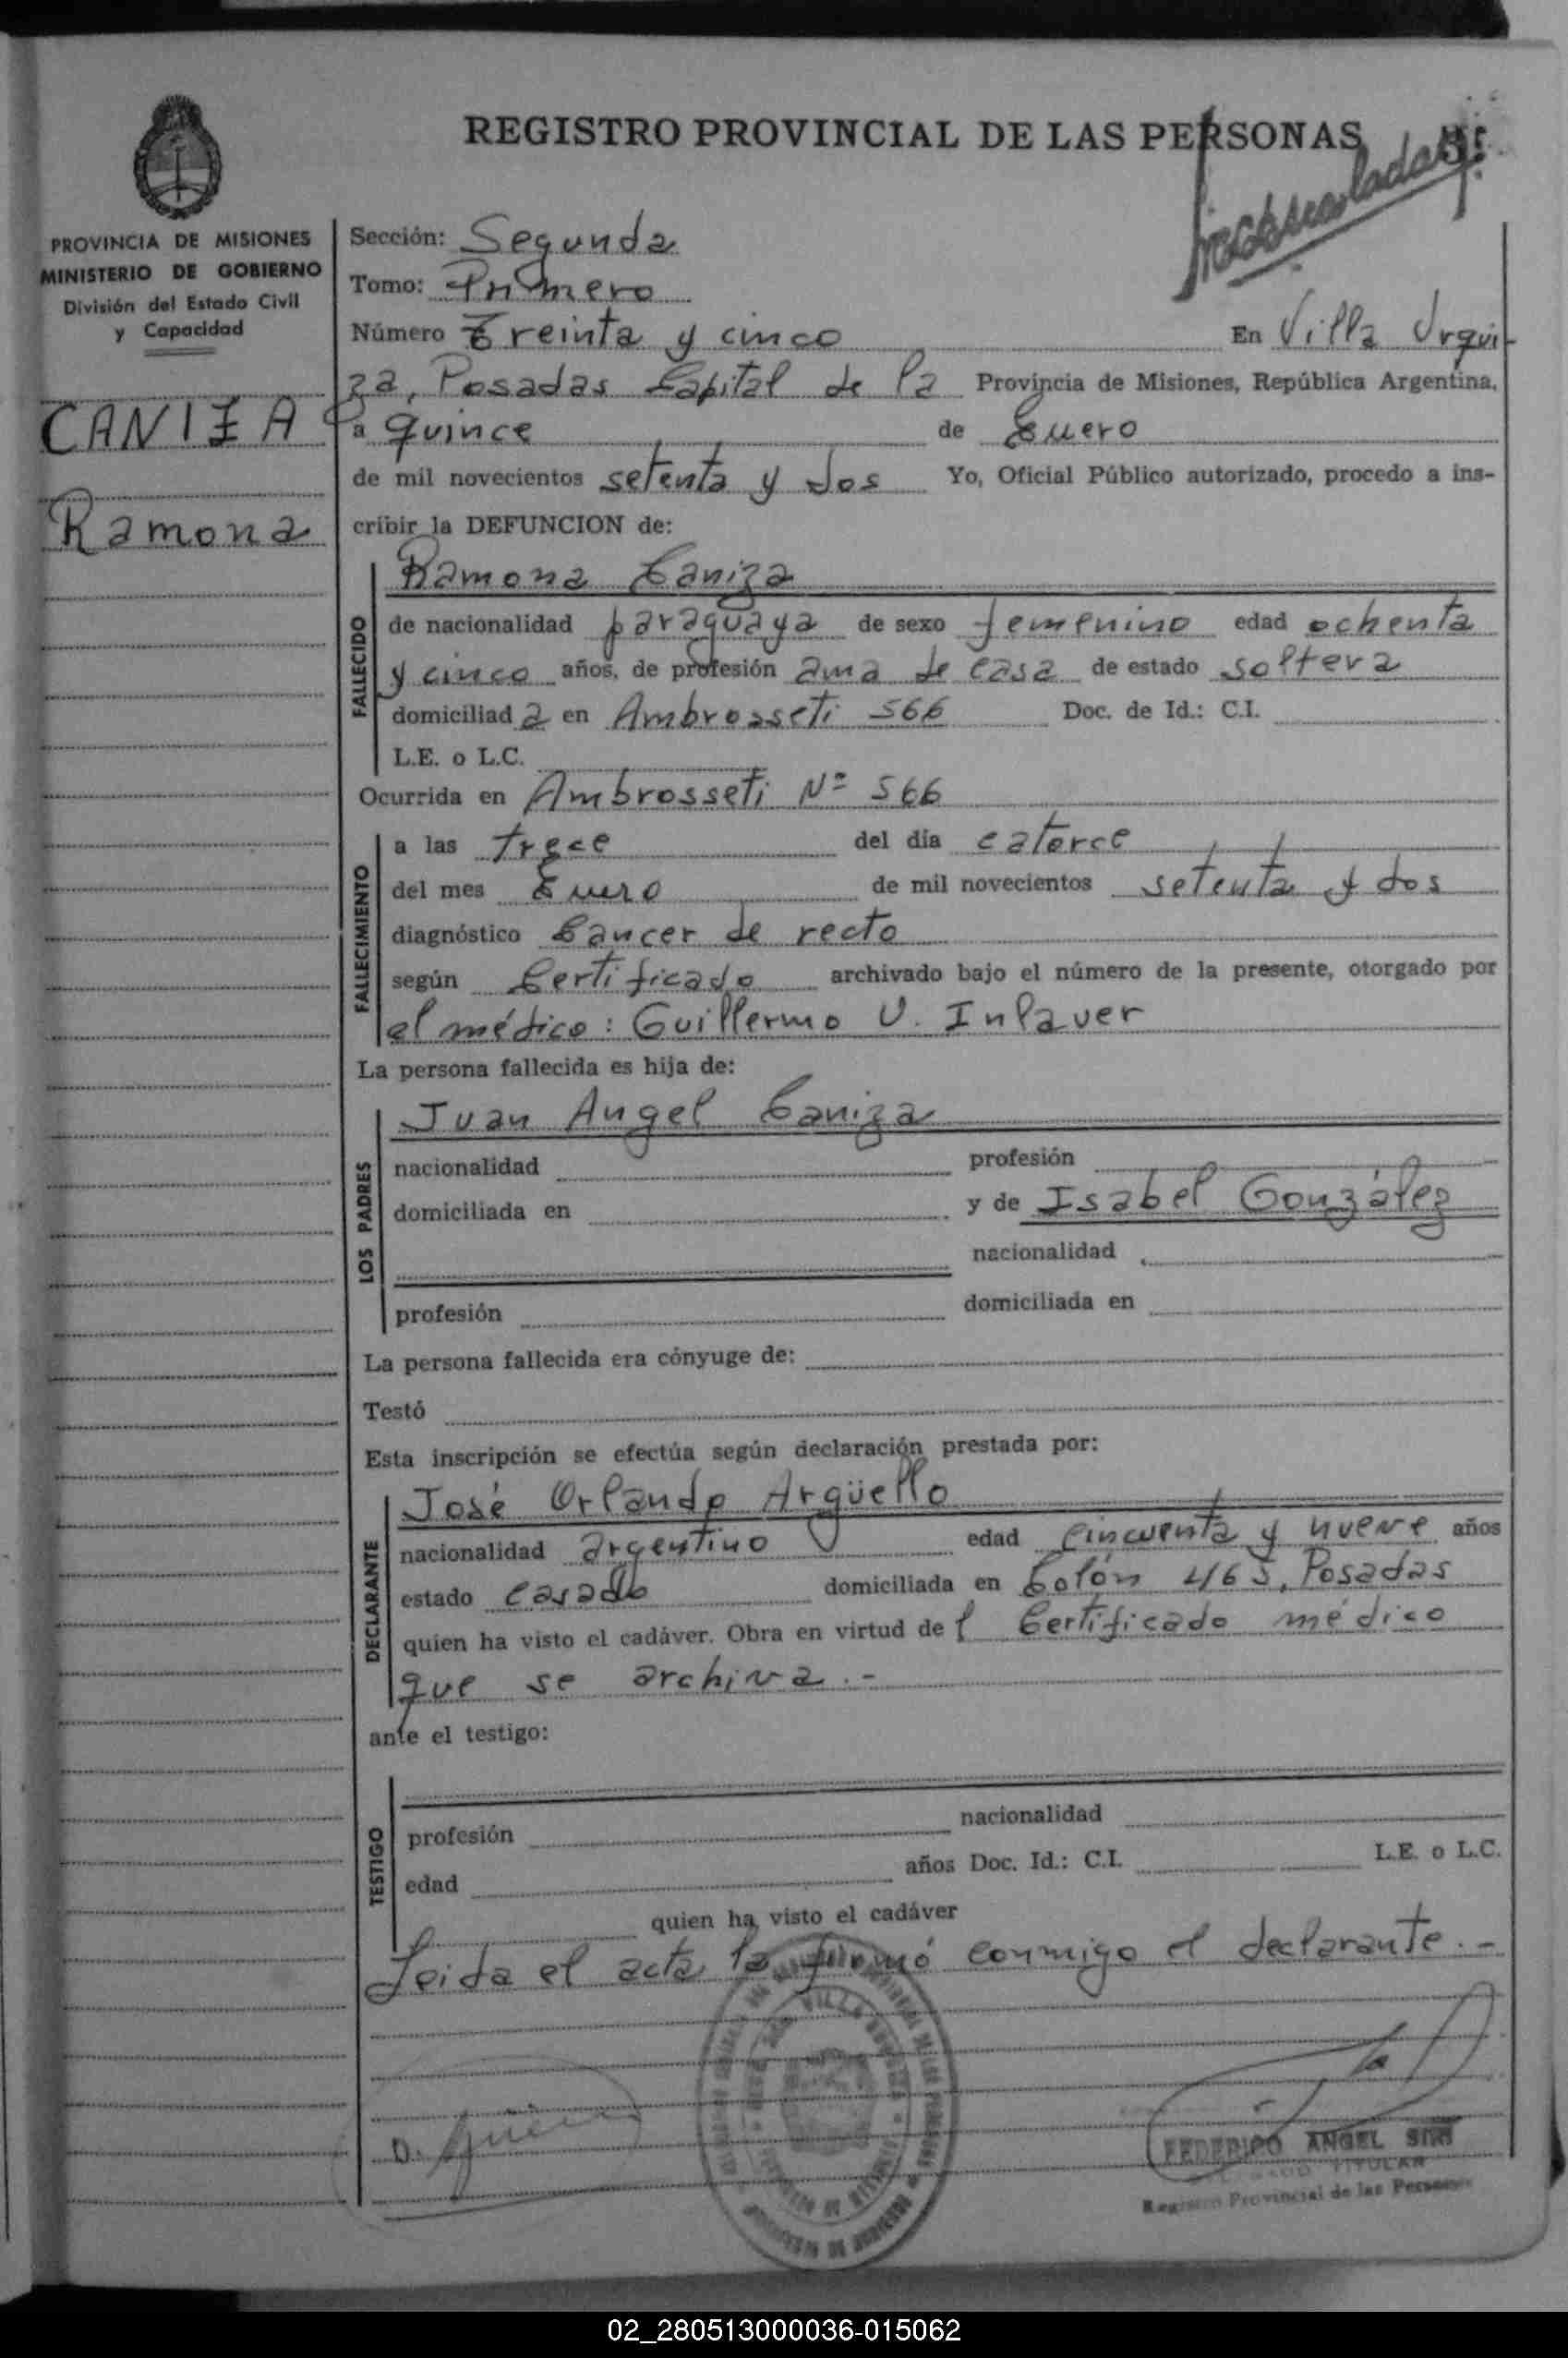 REGISTRO PROVINCIAL DE LAS PERSONAS
PROVINCIA DE MISIONES
MINISTERIO DE GOBIERNO
División del Estado Civil
y Capacidad
CANIZA
Ramona
Sección: Segunda
Tomo: Primero
Número Treinta y cinco En Villa Urqui-
za, Posadas Capital de la Provincia de Misiones, República Argentina,
a quince de Enero
de mil novecientos setenta y dos Yo, Oficial Público autorizado, procedo a ins-
cribir la DEFUNCION de:
FALLECIDO
Ramona Caniza
de nacionalidad paraguaya de sexo femenino edad ochenta
y cinco años, de profesión ama de casa de estado soltera
domiciliada en Ambrosseti 566 Doc. de Id.: C.I.
L.E. o L.C.
Ocurrida en Ambrosseti Nº 566
FALLECIMIENTO
a las trece del día catorce
del mes Enero de mil novecientos setenta y dos
diagnóstico Cancer de recto
según Certificado archivado bajo el número de la presente, otorgado por
el médico: Guillermo U. Inlauer
La persona fallecida es hija de:
LOS PADRES
Juan Angel Caniza
nacionalidad profesión
domiciliada en y de Isabel González
nacionalidad
profesión domiciliada en
La persona fallecida era cónyuge de:
Testó
Esta inscripción se efectúa según declaración prestada por:
DECLARANTE
José Orlando Argüello
nacionalidad argentino edad cincuenta y nueve años
estado casado domiciliada en Colón 465, Posadas
quien ha visto el cadáver. Obra en virtud del Certificado médico
que se archiva.-
ante el testigo:
TESTIGO
profesión nacionalidad
edad años Doc. Id.: C.I. L.E. o L.C.
quien ha visto el cadáver
Leida el acta la firmó conmigo el declarante.-
FEDERICO ANGEL
TITULAR
Registro Provincial de las Personas
02_280513000036-015062